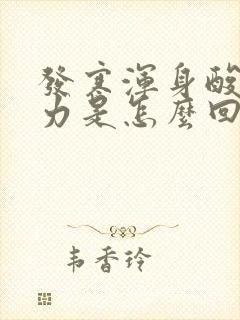 發寒渾身酸
力是怎麼回
韦香玲